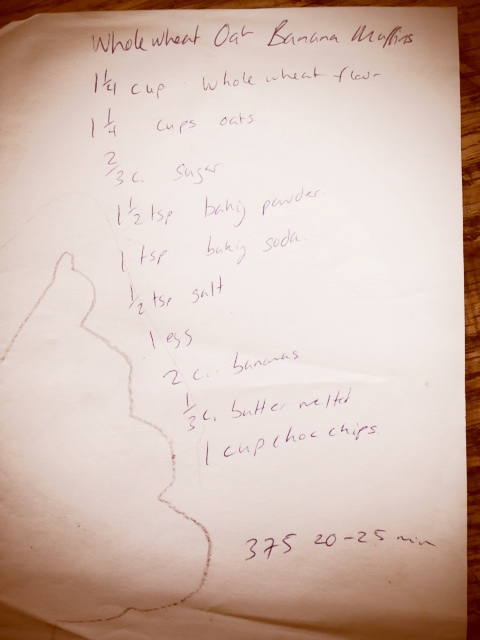 Whole wheat Oat Banana Muffins
1 1/4 cup whole wheat flour
1 1/4 cups oats
2/3 c. sugar
1 1/2 tsp baking powder
1 tsp baking soda.
1/2 tsp salt
1 egg
2 c. bananas
1/3 c. butter melted
1 cup choc chips
375 20-25 min